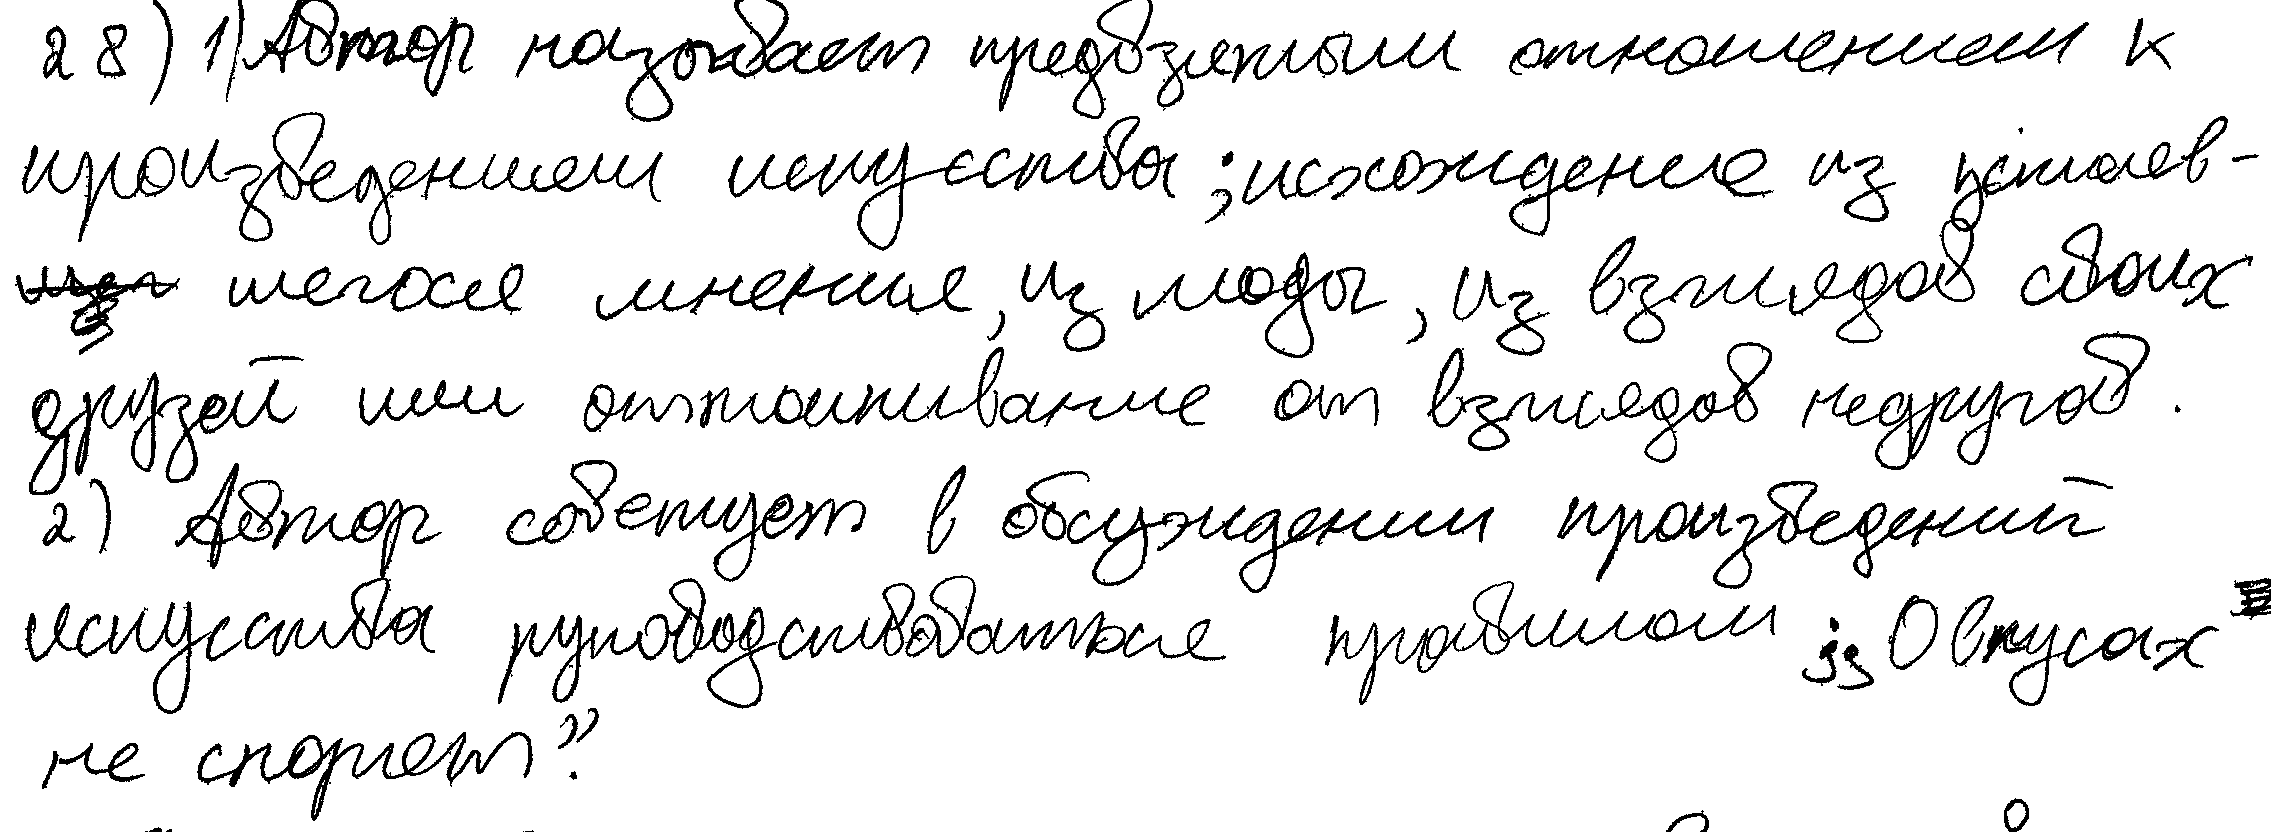 28) 1) Автор называет предвзятым отношением к
произведениям искусства; исхождение из устаяв-
шегося мнения, из моды, из взглядов своих
друзей или отталкивание от взглядов недругов.
2) Автор советует в обсуждении произведений
искусства руководствоваться правилом: „О вкусах
не спорят".